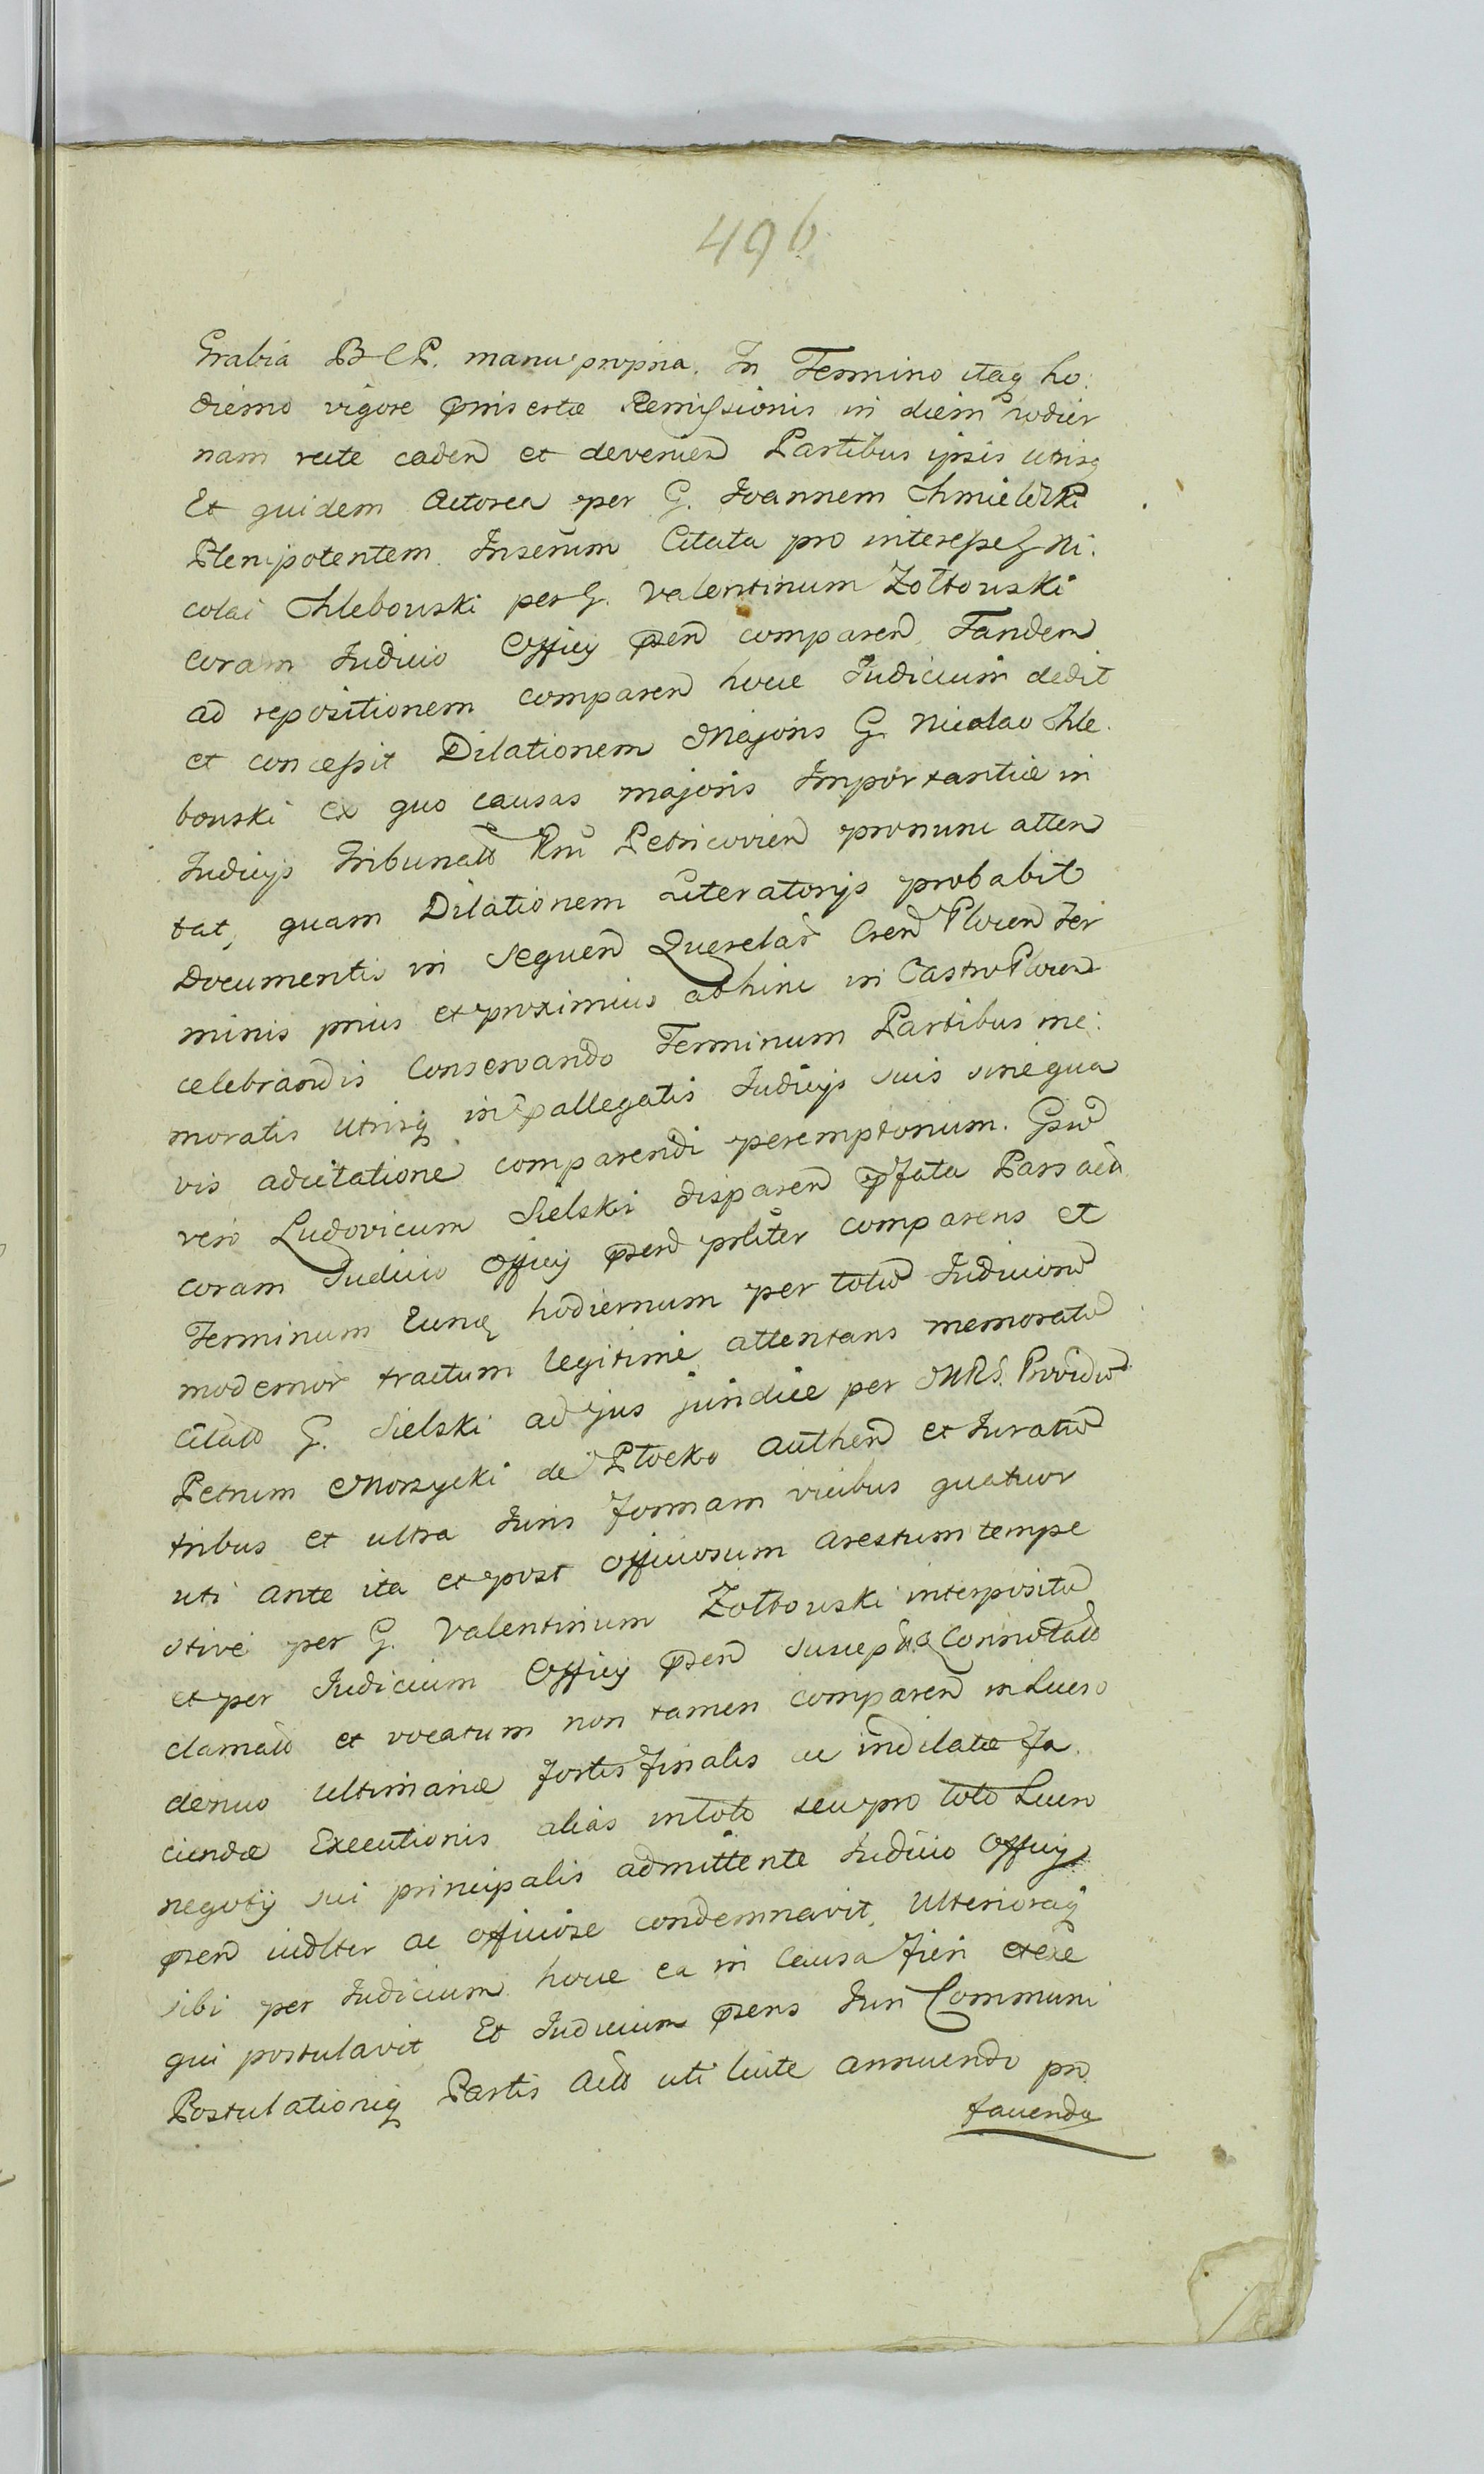 496
Grabia B C P. manu propria. In Termino itaq ho:
dierno vigore prinsertæ Remissionis in diem hodier
nam recte caden et devenien Partibus ipsis utrisq
Et quidem Actorea per G. Joannem Chmielewski
Plenipotentem Inserum Citata pro interesse G Ni:
colai Chlebowski per G. Valentinum Zołtowski
coram Judicio Officij pñen comparen Tandem
ad repositionem comparen hocce Judicium dedit
et concessit Dilationem Majoris G. Nicolao Chle:
bowski ex quo causas majoris Importantiæ in
Judicijs Tribunał Rni Petricovien pronunc atten
tat, quam Dilationem Literatorijs probabit
Documentis in sequen Querelar Cren Plocen Ter
minis prius et proximius abhinc in Castro Plocen
celebrandis Conservando Terminum Partibus me:
moratis utrisq in pallegatis Judicijs suis sine qua
vis adcitatione comparendi peremptorium. Gsum
vero Ludovicum Sielski disparen pfata Pars act
coram Judicio Officij pñen psliter comparens et
Terminum Eunq hodiernum per totum Judicior
modernor tractum legitime attentans memorata
citat G. Sielski ad jus juridice per MRS. Providum
Petrum Morzycki de Płocko Authen et Juratum
tribus et ultra Juris formam vicibus quatuor
uti ante ita et post officiosum arestum tempe
stive per G. Valentinum Zołtowski interpositum
et per Judicium Officij pñen suscepta Connotat
clamat et vocatum non tamen comparen in Lucro
denuo ultimariæ fortis finalis ac indilatæ fa
ciendæ Executionis alias in toto seu pro toto Lucro
negotij sui principalis admittente Judicio Officij
pñen iudlter ac officiose condemnavit, Ulterioraq
sibi per Judicium hocce ea in Causa fieri et exe
qui postulavit Et Judicium pñens Juri Communi
Postulationiq Partis Act uti licite annuendo pro
favenda